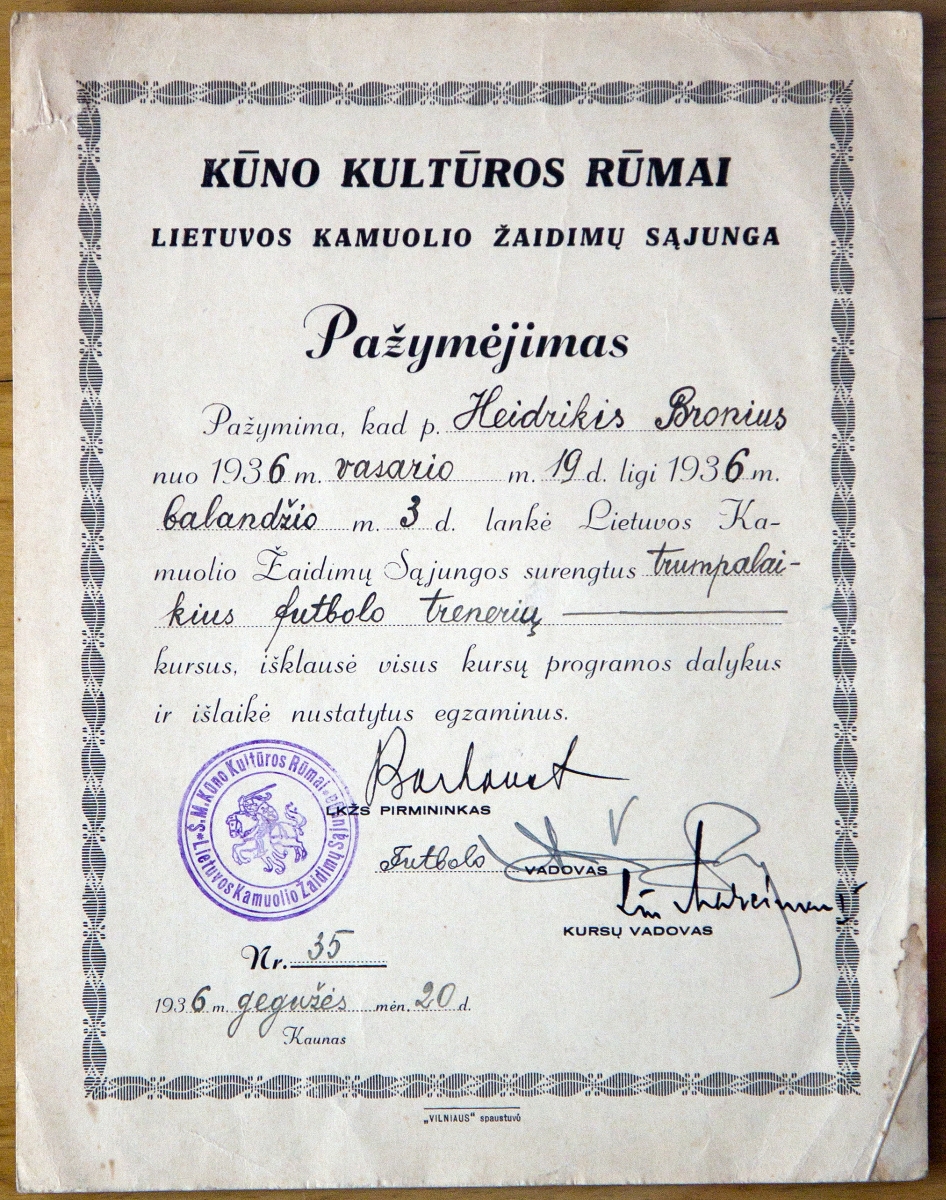 KŪNO KULTŪROS RŪMAI
LIETUVOS KAMUOLIO ŽAIDIMŲ SĄJUNGA
Pažymėjimas
Pažymima, kad p. Heidrikis Bronius
nuo 1936 m. vasario m. 19 d. ligi 1936 m.
balandžio m. 3 d. lankė Lietuvos Ka-
muolio Žaidimų Sąjungos surengtus trumpalai-
kius futbolo trenerių
kursus, išklausė visus kursų programos dalykus
ir išlaikė nustatytus egzaminus.
Š. M. Kūno Kultūros Rūmai
Lietuvos Kamuolio Žaidimų Sąjunga
LKŽS PIRMININKAS
Futbolo VADOVAS
KURSŲ VADOVAS
Nr. 35
1936 m. gegužės mėn. 20 d.
Kaunas
„VILNIAUS“ spaustuvė